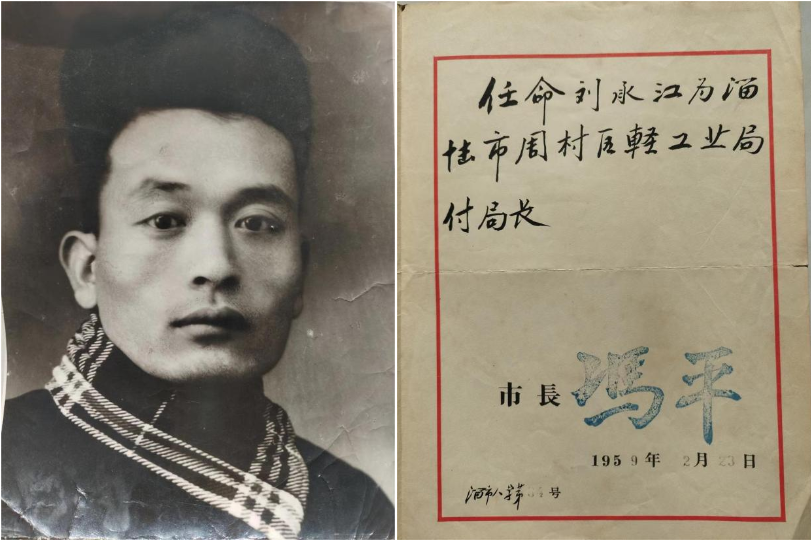 任命刘永江为淄
博市周村区軽工业局
付局长
市長 馮平
1959年2月23日
淄市人字第号